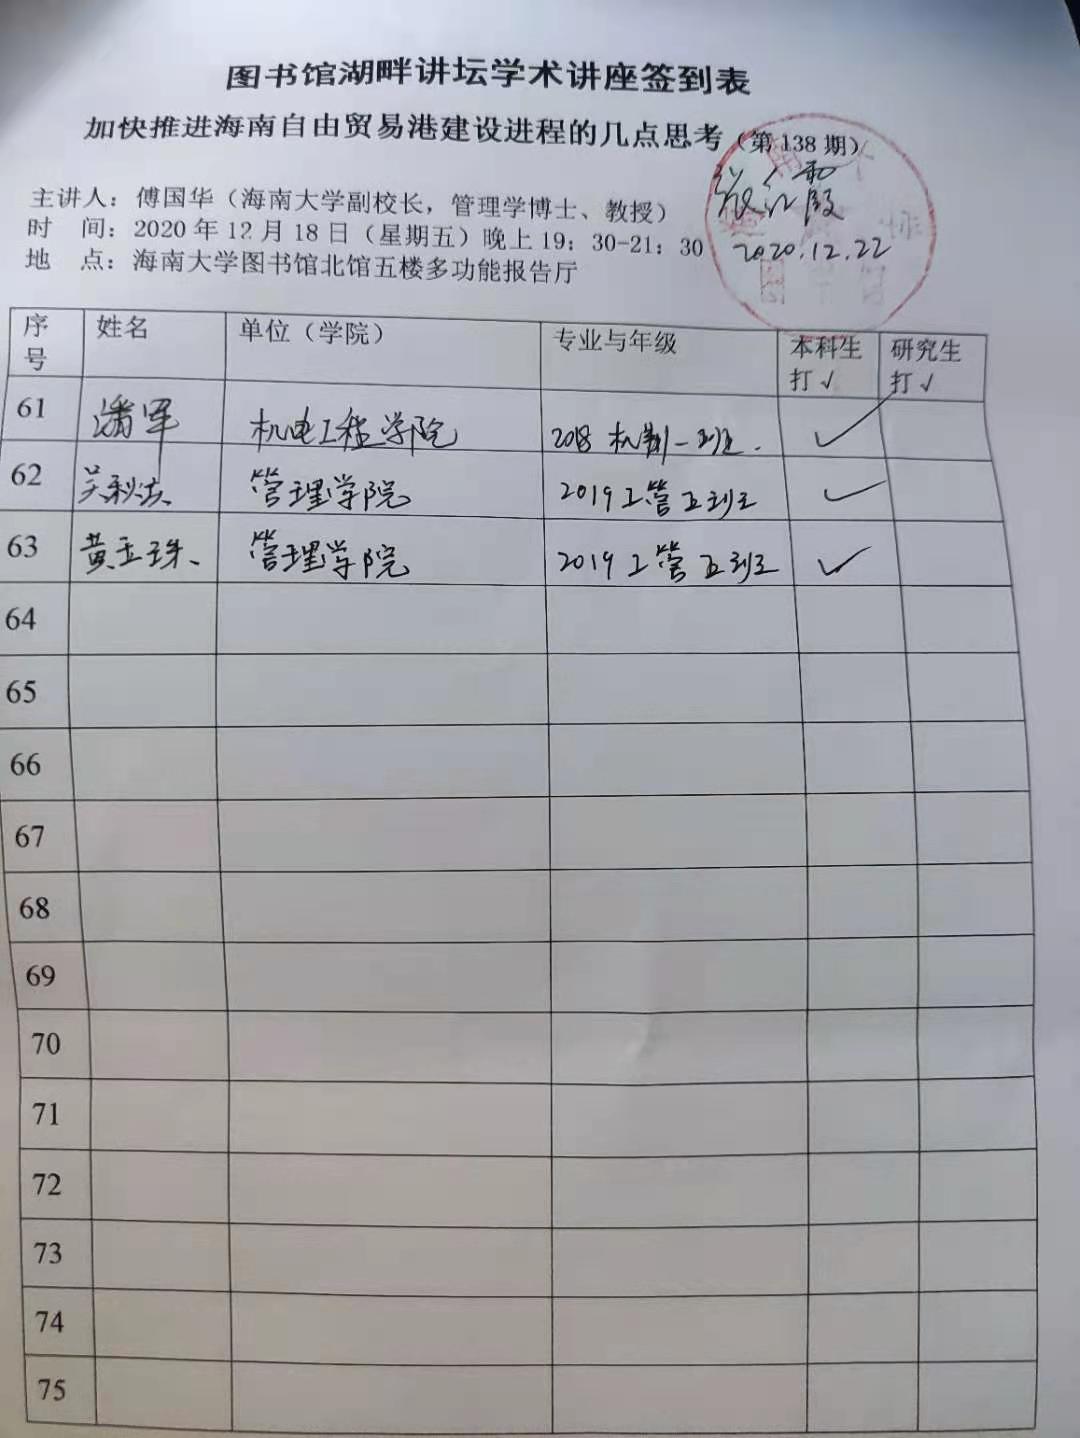 图书馆湖畔讲坛学术讲座签到表
加快推进海南自由贸易港建设进程的几点思考（第 138 期）
主讲人：傅国华（海南大学副校长，管理学博士、教授）
时 间：2020 年 12 月 18 日（星期五）晚上 19：30-21：30
2020.12.22
地 点：海南大学图书馆北馆五楼多功能报告厅
序号 姓名 单位（学院） 专业与年级 本科生打√ 研究生打√
61 潘军 机电工程学院 2018 机制一班. ✓
62 管理学院 2019工管五班 ✓
63 黄玉珠、 管理学院 2019工管五班 ✓
64
65
66
67
68
69
70
71
72
73
74
75